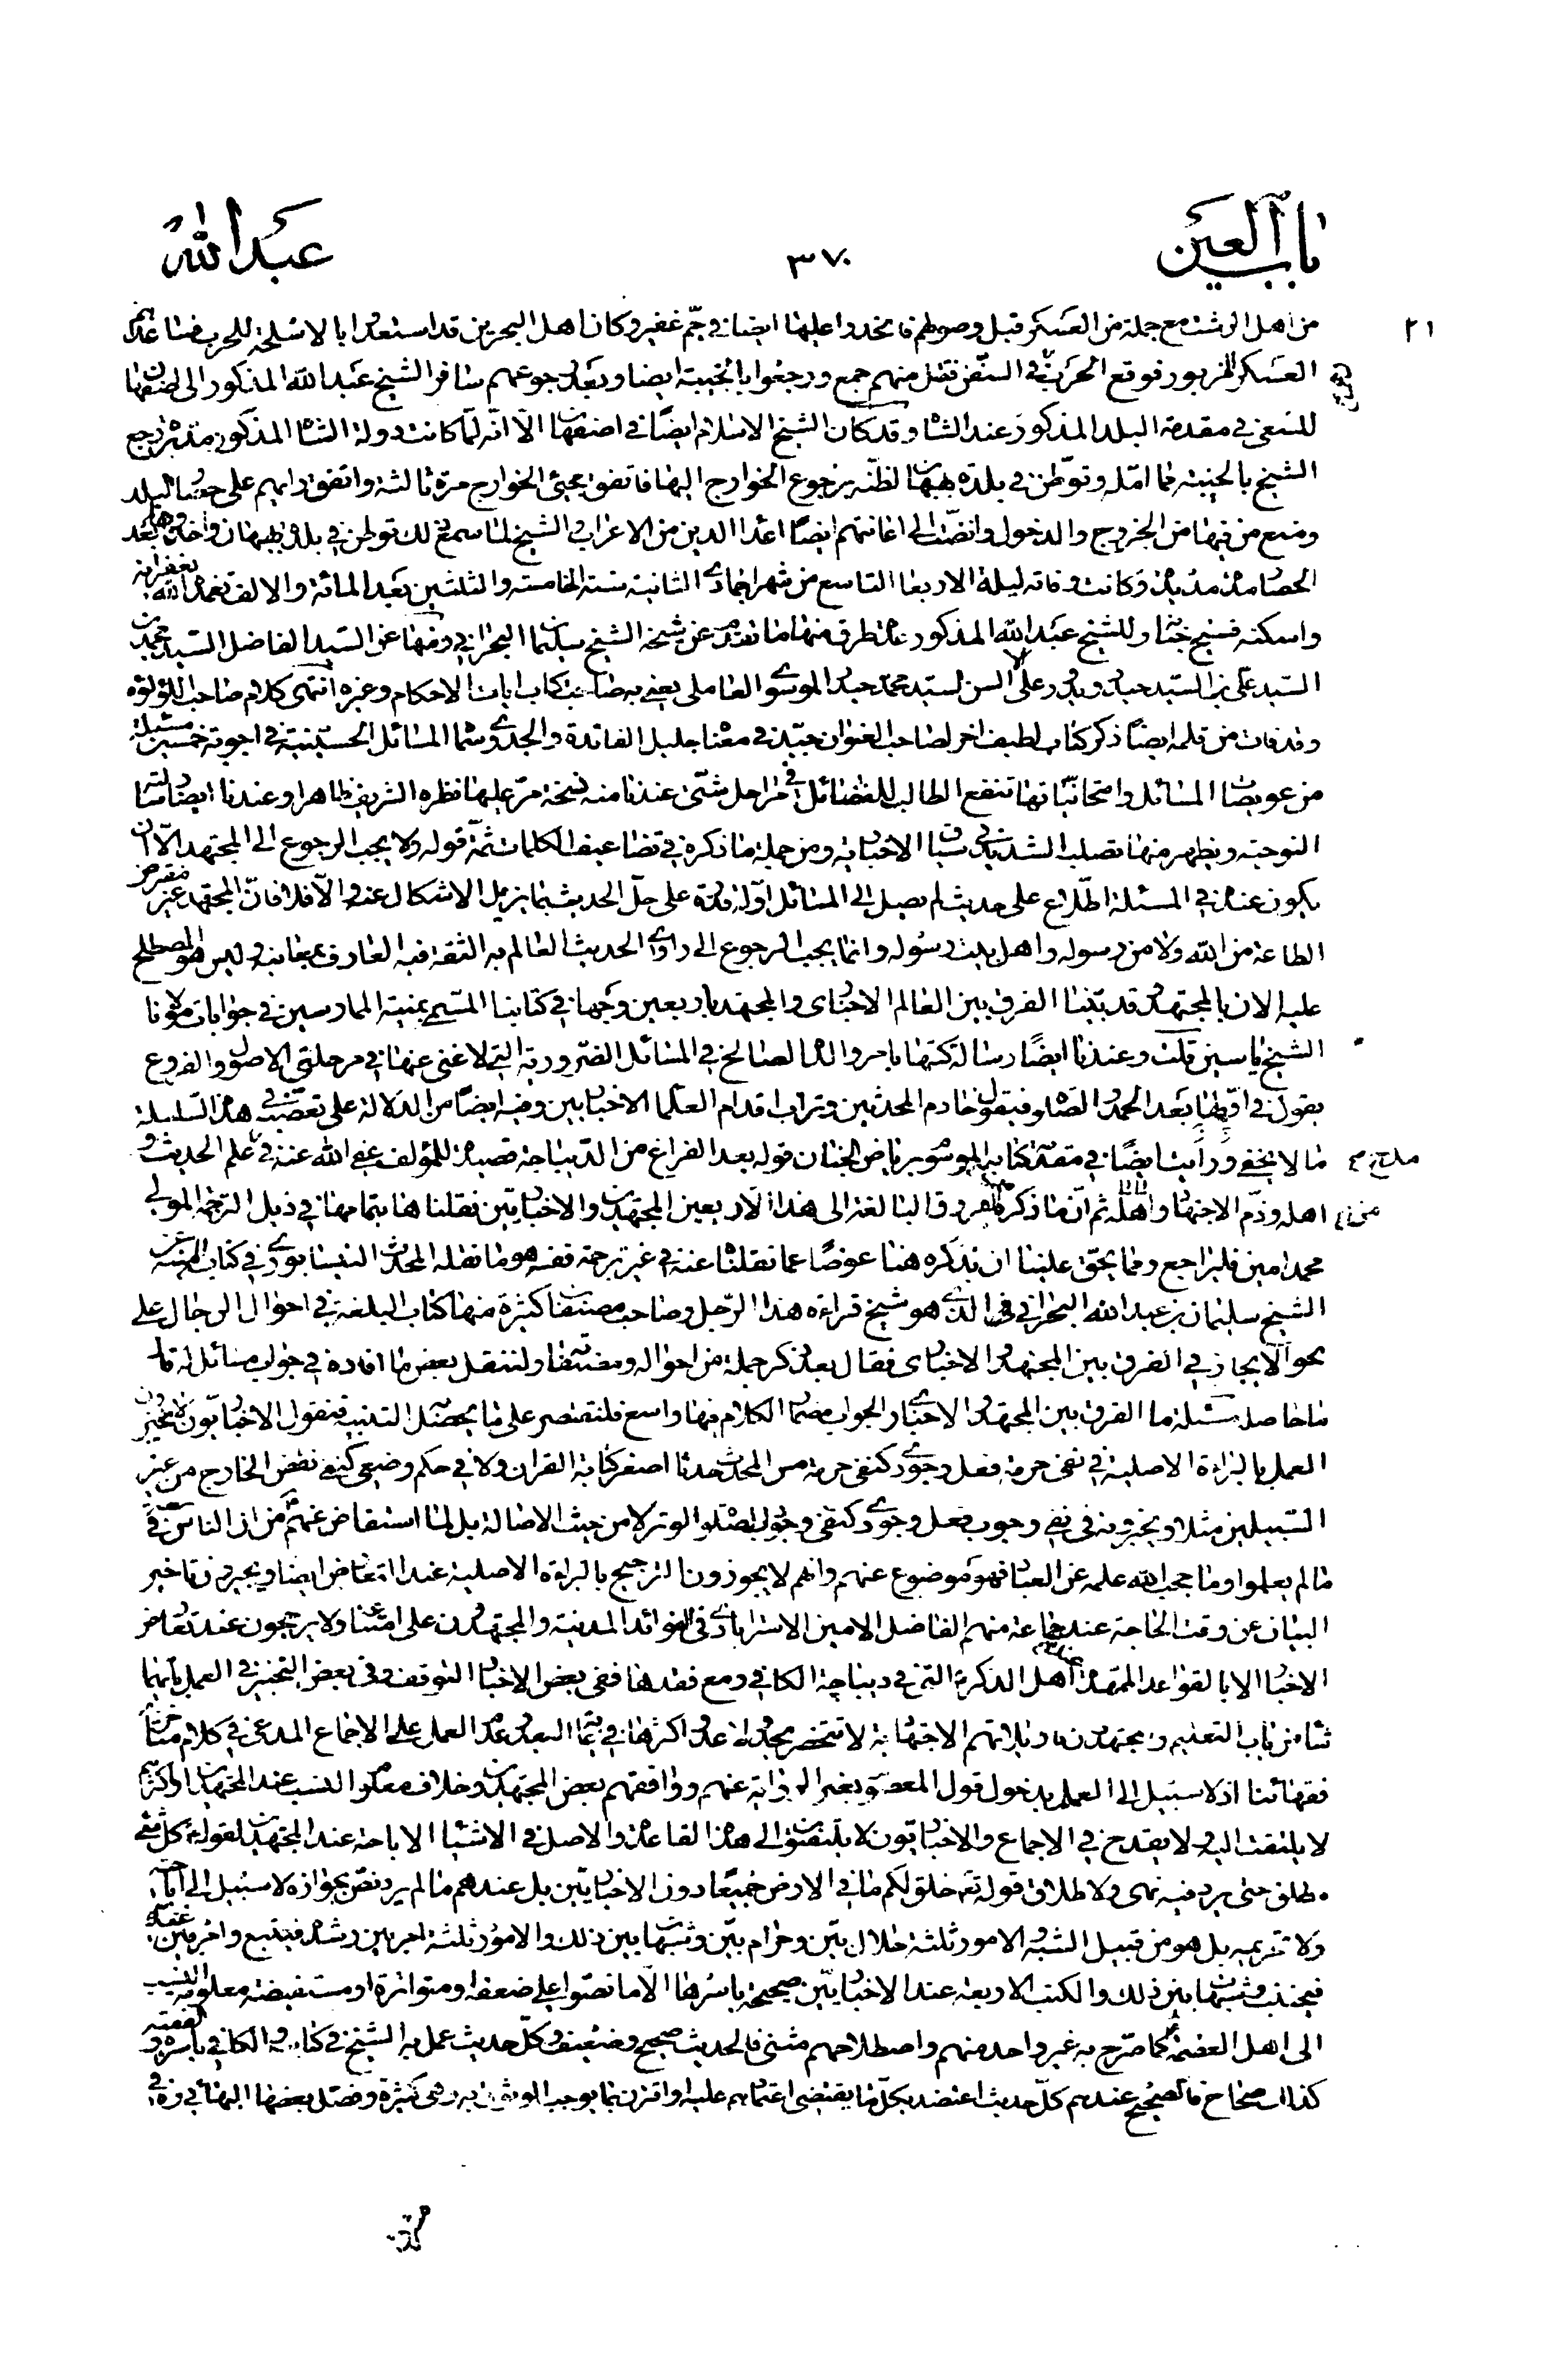 باب العين
٣٧٠
عبد الله
من اهل الرشت مع جملة من العسكر قبل وصولهم فانحدروا عليها ايضا في جمّ غفير وكان اهل البحرين قد استعدوا بالاسلحة للحرب
العسكر المزبور فوقع الحرب في السفن فقتل منهم جمع ورجعوا بالخيبة ايضا وبعد رجوعهم سافر الشيخ عبد الله المذكور الى اصفهان
للسعي في مقدمة البلد المذكور عند الشاه وقد كان الشيخ الاسلام ايضًا في اصفهان الّا انّه لمّا كانت دولة الشاه المذكور مدبرة رجع
الشيخ بالخيبة مما امّله وتوطن في بلدة بهبهان لظنّه برجوع الخوارج اليها فاتفق مجئ الخوارج مرة ثالثة واتفق رايهم على حصار البلد
ومنع من فيها من الخروج والدخول وانضمت الى اعانتهم ايضًا اعداء الدين من الاعراب والشيخ لما سمع ذلك توطن في بلاد بهبهان واخذوها بعد
الحصار مدة مديدة وكانت وفاته ليلة الاربعاء التاسع من شهر جمادى الثانية سنة الخامسة والثلثين بعد المائة والالف تغمده الله بغفرانه
واسكنه فسيح جنانه وللشيخ عبد الله المذكور عدة طرق منها ما تقدم عن شيخه الشيخ سليمان البحراني ومنها عن السيد الفاضل السيد محمد بن
السيد علي بن السيد حيدر السيد محمد حيدر الموسوي العاملي يعني به صاحب كتاب ايات الاحكام وغيره انتهى كلام صاحب اللؤلؤة
وقد فات من قلمه ايضًا ذكر كتاب لطيف اخر لصاحب العنوان جيّد في معناه جليل الفائدة والجدوى سماه المسائل الحسينية في اجوبة خمسين مسئلة
من عويصات المسائل وامتحانياتها تنفع الطالب للفضائل في مراحل شتى عندنا منه نسخة مرّ عليها نظره الشريف ظاهرا وعندنا ايضا رسالته
النوحية ويظهر منها تصلبه الشديد في الاخبارية ومن جملة ما ذكره في تضاعيف الكلمات ثمّة قوله ولا يجب الرجوع الى المجتهد الّا ان
يكون عنده في المسئلة اطّلاع على حديث لم يصل الى المسائل اوّله قدرة على حلّ الحديث بما يزيل الاشكال عنه والّا فلا فانّ المجتهد غير مفترض
الطاعة من الله ولا من رسوله واهل بيت رسوله وانما يجب الرجوع الى راوى الحديث العالم به الثقة فيه العارف بمعانيه وليس هو المصطلح
عليه الان بالمجتهد وقد بيّنا الفرق بين العالم الاخباري والمجتهد باربعين وجها في كتابنا المسمى بمنية الممارسين في جوابات مولانا
الشيخ ياسين قلت وعندنا ايضًا رسالة كتبها بامر والده الصالح في المسائل الضرورية التي لا غنى عنها في مرحلتي الاصول والفروع
يقول في اولها بعد الحمد والصلوة فيقول خادم المحدثين وتراب اقدام العلماء الاخباريين وفيه ايضًا من الدلالة على تعصبه في هذه السلسلة
ما لا يخفى ورأيت ايضًا في مقدمة كتابه الموسوم برياض الجنان قوله بعد الفراغ من الديباجة قصيدة للمؤلف عفى الله عنه في علم الحديث و
اهله وذم الاجتهاد واهله ثم انّ ما ذكره من الفروق البالغة الى هذا الاربعين بين المجتهدين والاخباريين نقلناها بتمامها في ذيل الترجمة المولى
محمد امين فليراجع ومما يحق علينا ان نذكره هنا عوضًا عما نقلناه عنه في غير ترجمة نفسه هو ما نقله المحدث النيسابوري في كتاب عن
الشيخ سليمان بن عبد الله البحراني الذى هو شيخ قراءة هذا الرّجل وصاحب مصنفات كثيرة منها كتاب البلغة في احوال الرجال على
نحو الايجاز في الفرق بين المجتهد والاخباري فقال بعد ذكر جملة من احواله ومصنفاته ولننقل بعض ما افاده في جواب مسائل له قال
ما حاصله مسئلة ما الفرق بين المجتهد والاخباري الجواب الكلام فيها واسع فلنقتصر على ما يحصل التنبيه فنقول الاخباريون لا يجيزون
العمل بالبراءة الاصلية في نفى حرمة فعل وجودى كنفى حرمة مس المحدث حدثا اصغر كتابة القران ولا في حكم وضعي كنفى نقض الخارج من غير
السبيلين مثلا ويجيزونه في نفي وجوب فعل وجودى كنفى وجوب صلوة الوتر لا من حيث الاصالة بل لما استفاض عنهم من ان الناس في سعة
ما لم يعلموا وما حجب الله علمه عن العباد فهو موضوع عنهم وانهم لا يجوزون الترجيح بالبراءة الاصلية عند التعارض ايضا ويجيزون تاخير
البيان عن وقت الحاجة عند جماعة منهم الفاضل الامين الاسترابادي في الفوائد المدنية والمجتهدون على امتناعه ولا يرجحون عند تعارض
الاخبار الا بالقواعد الممهدة عن اهل الذكر التي في ديباجة الكافي ومع فقدها ففي بعض الاخبار التوقف وفي بعض التخيير في العمل بايهما
شاء من باب التسليم والمجتهدون الاجتهادية لا تنحصر اكثرها في العمل على الاجماع المدعى في كلام متاخري
فقهائنا اذ لا سبيل الى العمل بدخول قول المعصوم بغير الرواية عنهم ووافقهم بعض المجتهدين وخلاف معلوم النسب عند المجتهدين او اكثرهم
لا يلتفت اليه ولا يقدح في الاجماع والاخباريون لا يلتفتون الى هذه القاعدة والاصل في الاشياء الاباحة عند المجتهدين لقوله كل شئ
مطلق حتى يرد فيه نهى ولاطلاق قوله تعه خلق لكم ما في الارض جميعًا دون الاخباريين بل عندهم ما لم يرد نص بجوازه لا سبيل الى اباحته
ولا تحريمه بل هو من قبيل الشبهة والامور ثلثة حلال بيّن وحرام بيّن وشبهات بين ذلك والامور ثلثة امر بين رشده فيتبع وامر بين غيه
فيجتنب وشبهات بين ذلك والكتب الاربعة عند الاخباريين صحيحة باسرها الّا ما نصوا على ضعفه او متواترة او مستفيضة معلومة النسب
الى اهل العصمة كما صرّح به غير واحد منهم واصطلاحهم مثنى فالحديث صحيح وضعيف وكلّ حديث عمل به الشيخ في كتابيه والكافي باسره والفقيه
كذا صحاح فالصحيح عندهم كلّ حديث اعتضد بكلّ ما يقتضى اعتمادهم عليه او اقترن بما يوجب الوثوق به وهى كثيرة وفصّل بعضها البهائي ره في